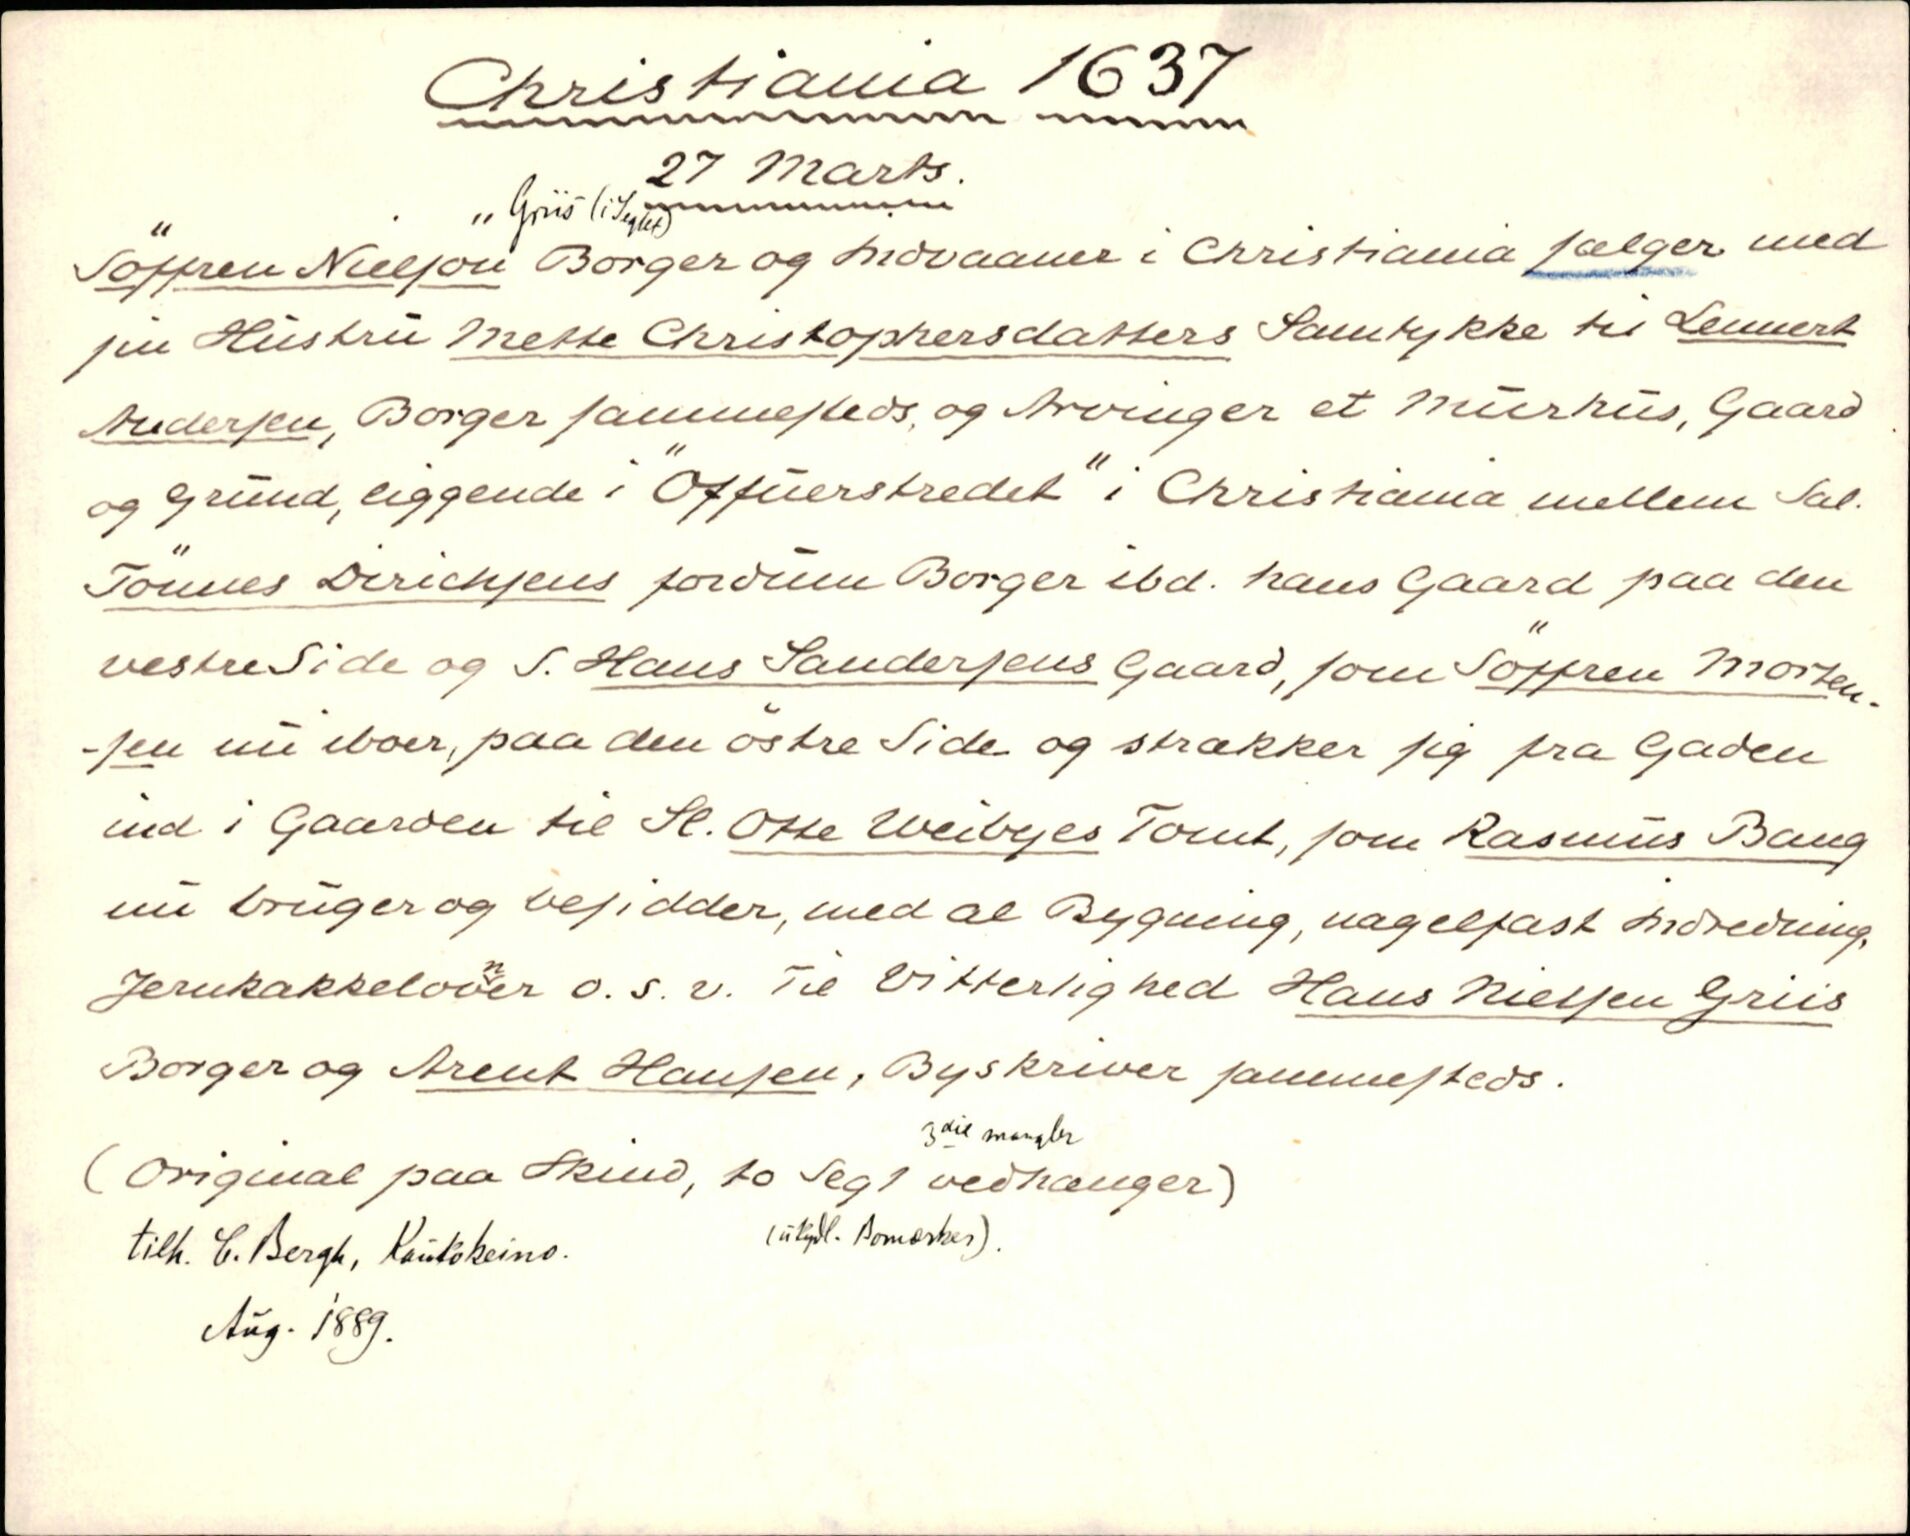 Christiania 1637
27 Marts.
" Griis (i Seglet)
Söffren Nielson Borger og Indvaaner i Christiania sælger med
sin Hustru Mette Christophersdatters Samtykke til Lennert
Andersen, Borger sammesteds, og Arvinger et Murhus, Gaard
og Grund, liggende i "Offuerstredet" i Christiania mellem Sal.
Tönnes Dirichsens fordum Borger ibd. hans Gaard paa den
vestre Side og S. Hans Sandersens Gaard, som Söffren Morten-
-sen nu iboer, paa den östre Side og strækker sig fra Gaden
ind i Gaarden til Sl. Otte Weibyes Tomt, som Rasmus Bang
nu bruger og besidder, med al Bygning, nagelfast Indredning,
Jernkakkelovner o. s. v. Til Vitterlighed Hans Nielsen Griis
Borger og Arent Hansen, Byskriver sammesteds.
3die mangler
(Original paa Skind, to Segl vedhænger)
(utydl. Bomærker).
tilh. C. Bergh, Kautokeino.
Aug. 1889.